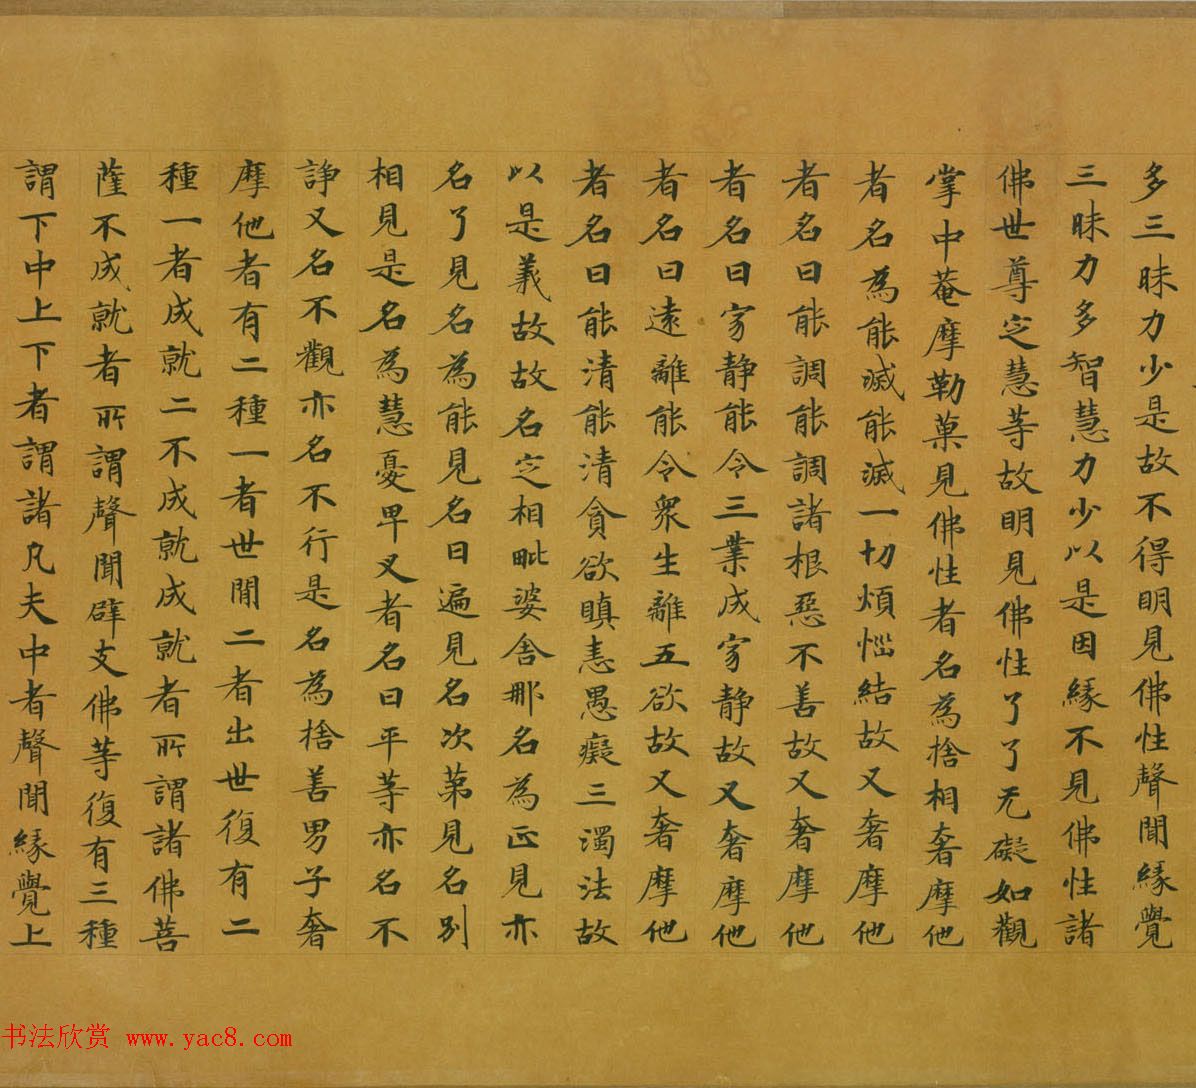 多三昧力少是故不得明見佛性聲聞緣覺
三昧力多智慧力少以是因緣不見佛性諸
佛世尊定慧等故明見佛性了了无礙如觀
掌中菴摩勒菓見佛性者名為捨相奢摩他
者名為能滅能滅一切煩惱結故又奢摩他
者名曰能調能調諸根惡不善故又奢摩他
者名曰寂静能令三業成寂静故又奢摩他
者名曰遠離能令衆生離五欲故又奢摩他
者名曰能清能清貪欲瞋恚愚癡三濁法故
以是義故故名定相毗婆舍那名為正見亦
名了見名為能見名曰遍見名次第見名別
相見是名為慧憂畢叉者名曰平等亦名不
諍又名不觀亦名不行是名為捨善男子奢
摩他者有二種一者世間二者出世復有二
種一者成就二不成就成就者所謂諸佛菩
薩不成就者所謂聲聞辟支佛等復有三種
謂下中上下者謂諸凡夫中者聲聞緣覺上
书法欣赏 www.yac8.com